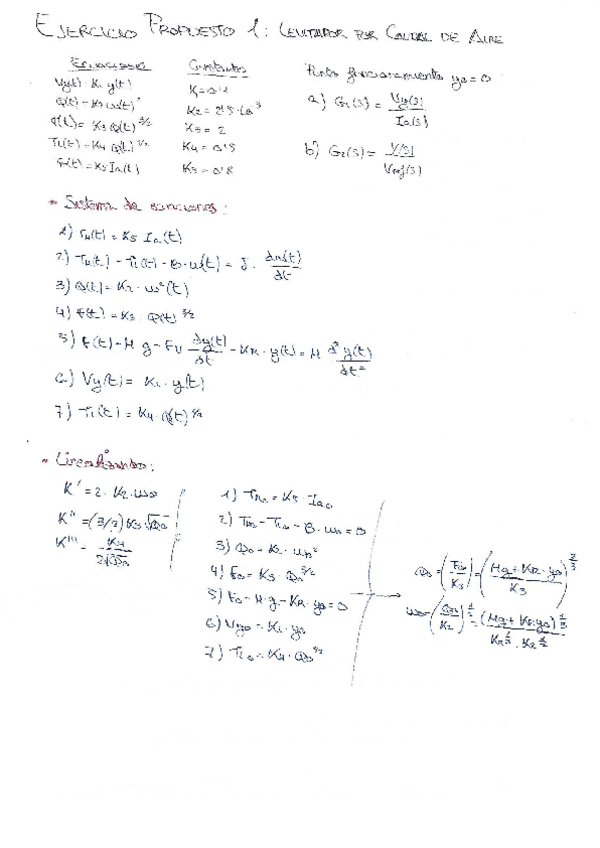 EJERCICIO PROPUESTO 1: LEVITADOR POR CAUDAL DE AIRE
Ecuaciones
Vy(t) K1 y(t)
Q(t) = K2 ω(t)²
f(t) = K3 Q(t)^3/2
TL(t) = K4 Q(t)^1/2
(t) = K5 Ia(t)
Constantes
K2 = 2'5·10
K3 = 2
K4 = 0'5
K5 = 0'8
Punto funcionamiento y0 = 0
a) G1(s) = Vy(s)/Ia(s)
b) G2(s) = Y(s)/Vref(s)
• Sistema de ecuaciones:
1) Tm(t) = K5 Ia(t)
2) Tm(t) - TL(t) - B·ω(t) = J · dω(t)/dt
3) Q(t) = K2 · ω²(t)
4) f(t) = K3 · Q(t)^3/2
5) f(t) - M g - Fv dy(t)/dt - KR · y(t) = M d²y(t)/dt²
6) Vy(t) = K1 · y(t)
7) TL(t) = K4 · Q(t)^1/2
• Linealizando:
K' = 2 · K2 · ω0
K'' = (3/2) K3 √Q0
K''' = K4/2√Q0
1) Tm0 = K5 · Ia0
2) Tm0 - TL0 - B · ω0 = 0
3) Q0 = K2 · ω0²
4) F0 = K3 · Q0^3/2
5) F0 - M·g - KR · y0 = 0
6) Vy0 = K1 · y0
7) TL0 = K4 · Q0^1/2
Q0 = (F0/K3) = (Mg + KR · y0/K3)^2/3